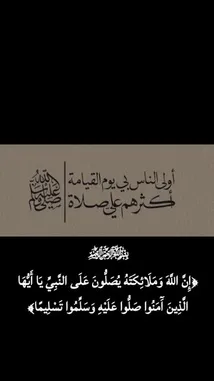 أولى الناس بي يوم القيامة
أكثرهم علي صلاة
ﷺ
﷽
﴿إِنَّ اللَّهَ وَمَلَائِكَتَهُ يُصَلُّونَ عَلَى النَّبِيِّ يَا أَيُّهَا
الَّذِينَ آمَنُوا صَلُّوا عَلَيْهِ وَسَلِّمُوا تَسْلِيمًا﴾